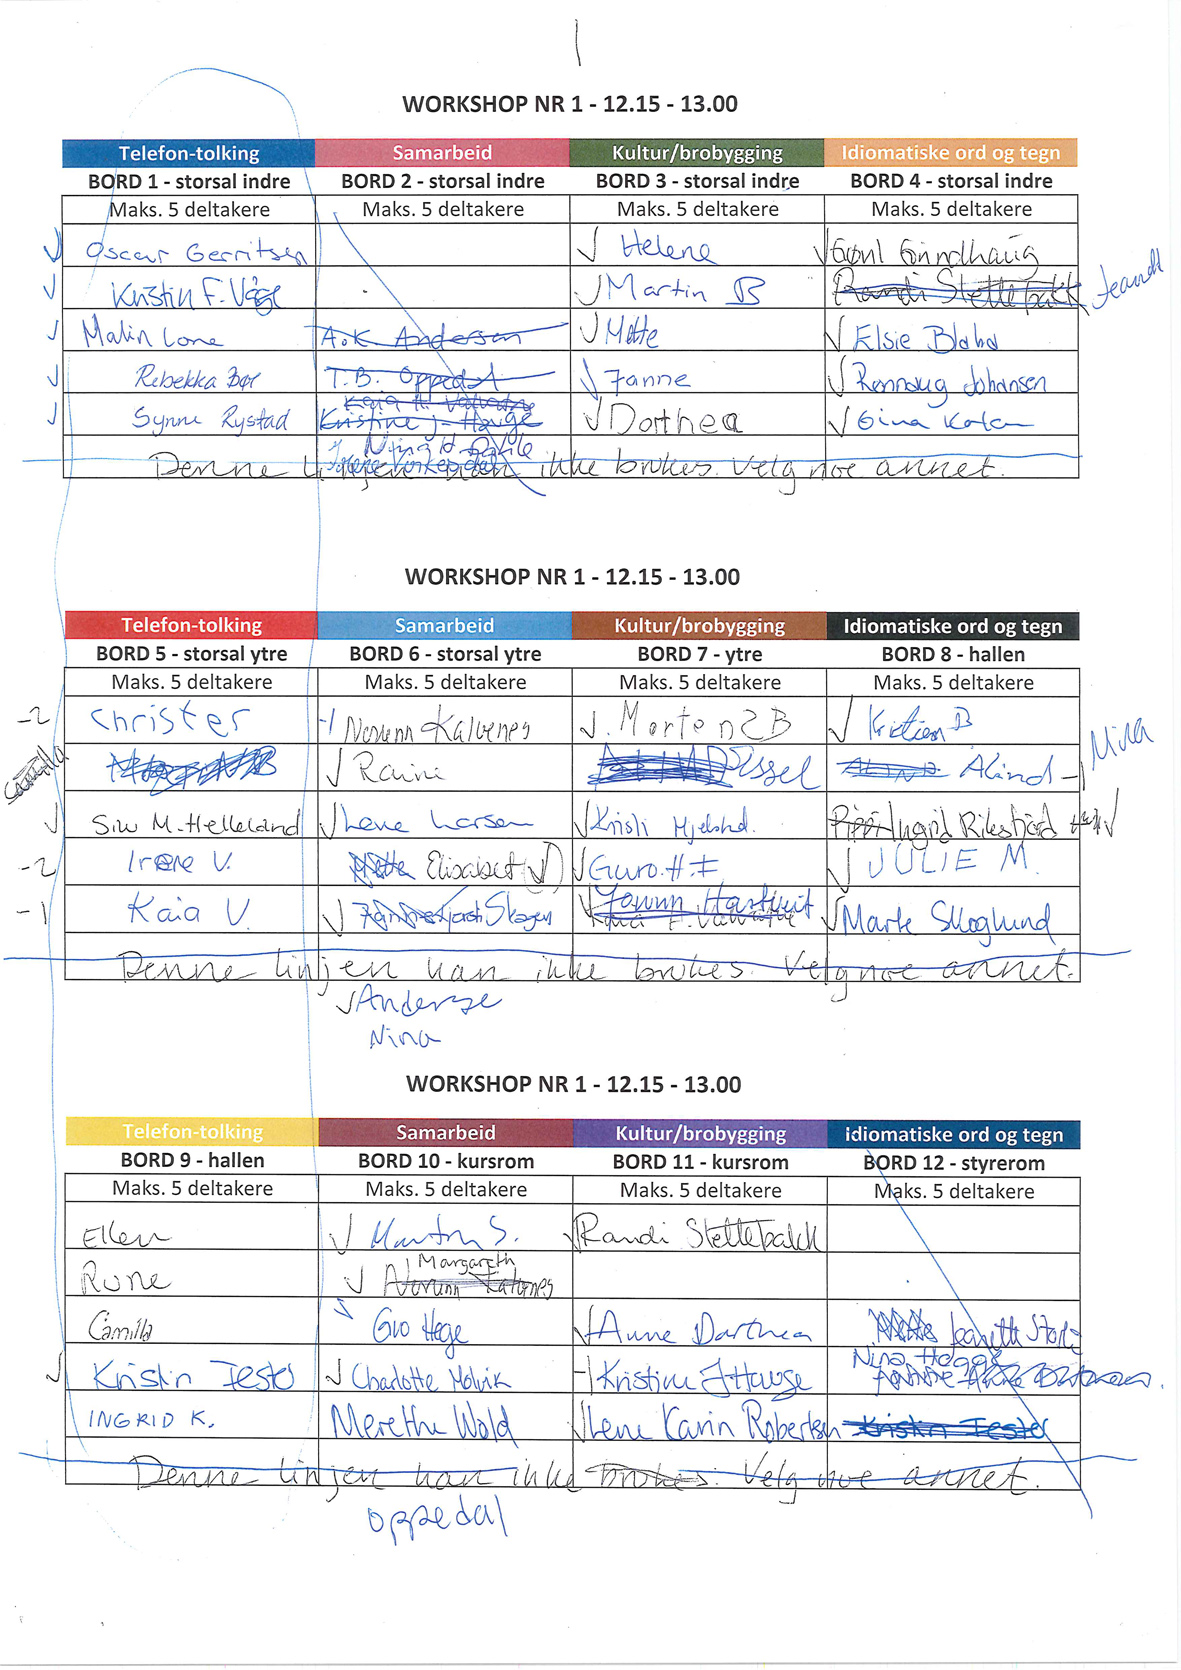 WORKSHOP NR 1 - 12.15 - 13.00
Telefon-tolking Samarbeid Kultur/brobygging Idiomatiske ord og tegn
BORD 1 - storsal indre BORD 2 - storsal indre BORD 3 - storsal indre BORD 4 - storsal indre
Maks. 5 deltakere Maks. 5 deltakere Maks. 5 deltakere Maks. 5 deltakere
Oscar Gerritsen Helene
Kristin F. Våge Martin B Randi Stettebakk
Malin Lone A.K Andersen Mette Elsie Blaba
Rebekka Bør T.B. Oppedal Janne Rønnaug Johansen
Synne Rystad Kristine J-Hauge Dorthea Gina
Denne linjen kan ikke brukes. Velg noe annet.
WORKSHOP NR 1 - 12.15 - 13.00
Telefon-tolking Samarbeid Kultur/brobygging Idiomatiske ord og tegn
BORD 5 - storsal ytre BORD 6 - storsal ytre BORD 7 - ytre BORD 8 - hallen
Maks. 5 deltakere Maks. 5 deltakere Maks. 5 deltakere Maks. 5 deltakere
-2 Christer -1 Norunn Kalvenes Morten S B Kristian B
Camilla Raini Sissel Alind Nina
Siw M. Helleland Lene Larsen Kristi Ingrid Rikstjørd
-2 Irene V. Mette Elisabet Guro.H.I JULIE M.
-1 Kaia V. Skogen Marte Skoglund
Denne linjen kan ikke brukes. Velg noe annet.
Nina
WORKSHOP NR 1 - 12.15 - 13.00
Telefon-tolking Samarbeid Kultur/brobygging idiomatiske ord og tegn
BORD 9 - hallen BORD 10 - kursrom BORD 11 - kursrom BORD 12 - styrerom
Maks. 5 deltakere Maks. 5 deltakere Maks. 5 deltakere Maks. 5 deltakere
Ellen Morten S. Randi Stettebakk
Margareth
Rune Norunn Kalvenes
Camilla Gro Hege Anne Dorthea Jeanette
Nina Hegge
Kristin Testo Charlotte Molvik Kristine J Hauge
INGRID K. Merethe Wold Lene Karin Robertsen Kristin Testo
Denne linjen kan ikke brukes. Velg noe annet.
Oppedal